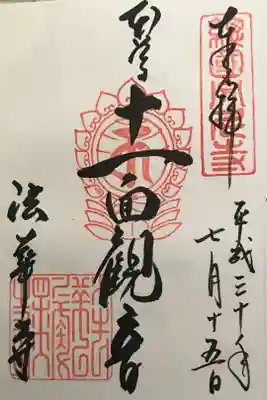 奉拝
平成三十年
七月十五日
本尊
十一面観音
法華寺